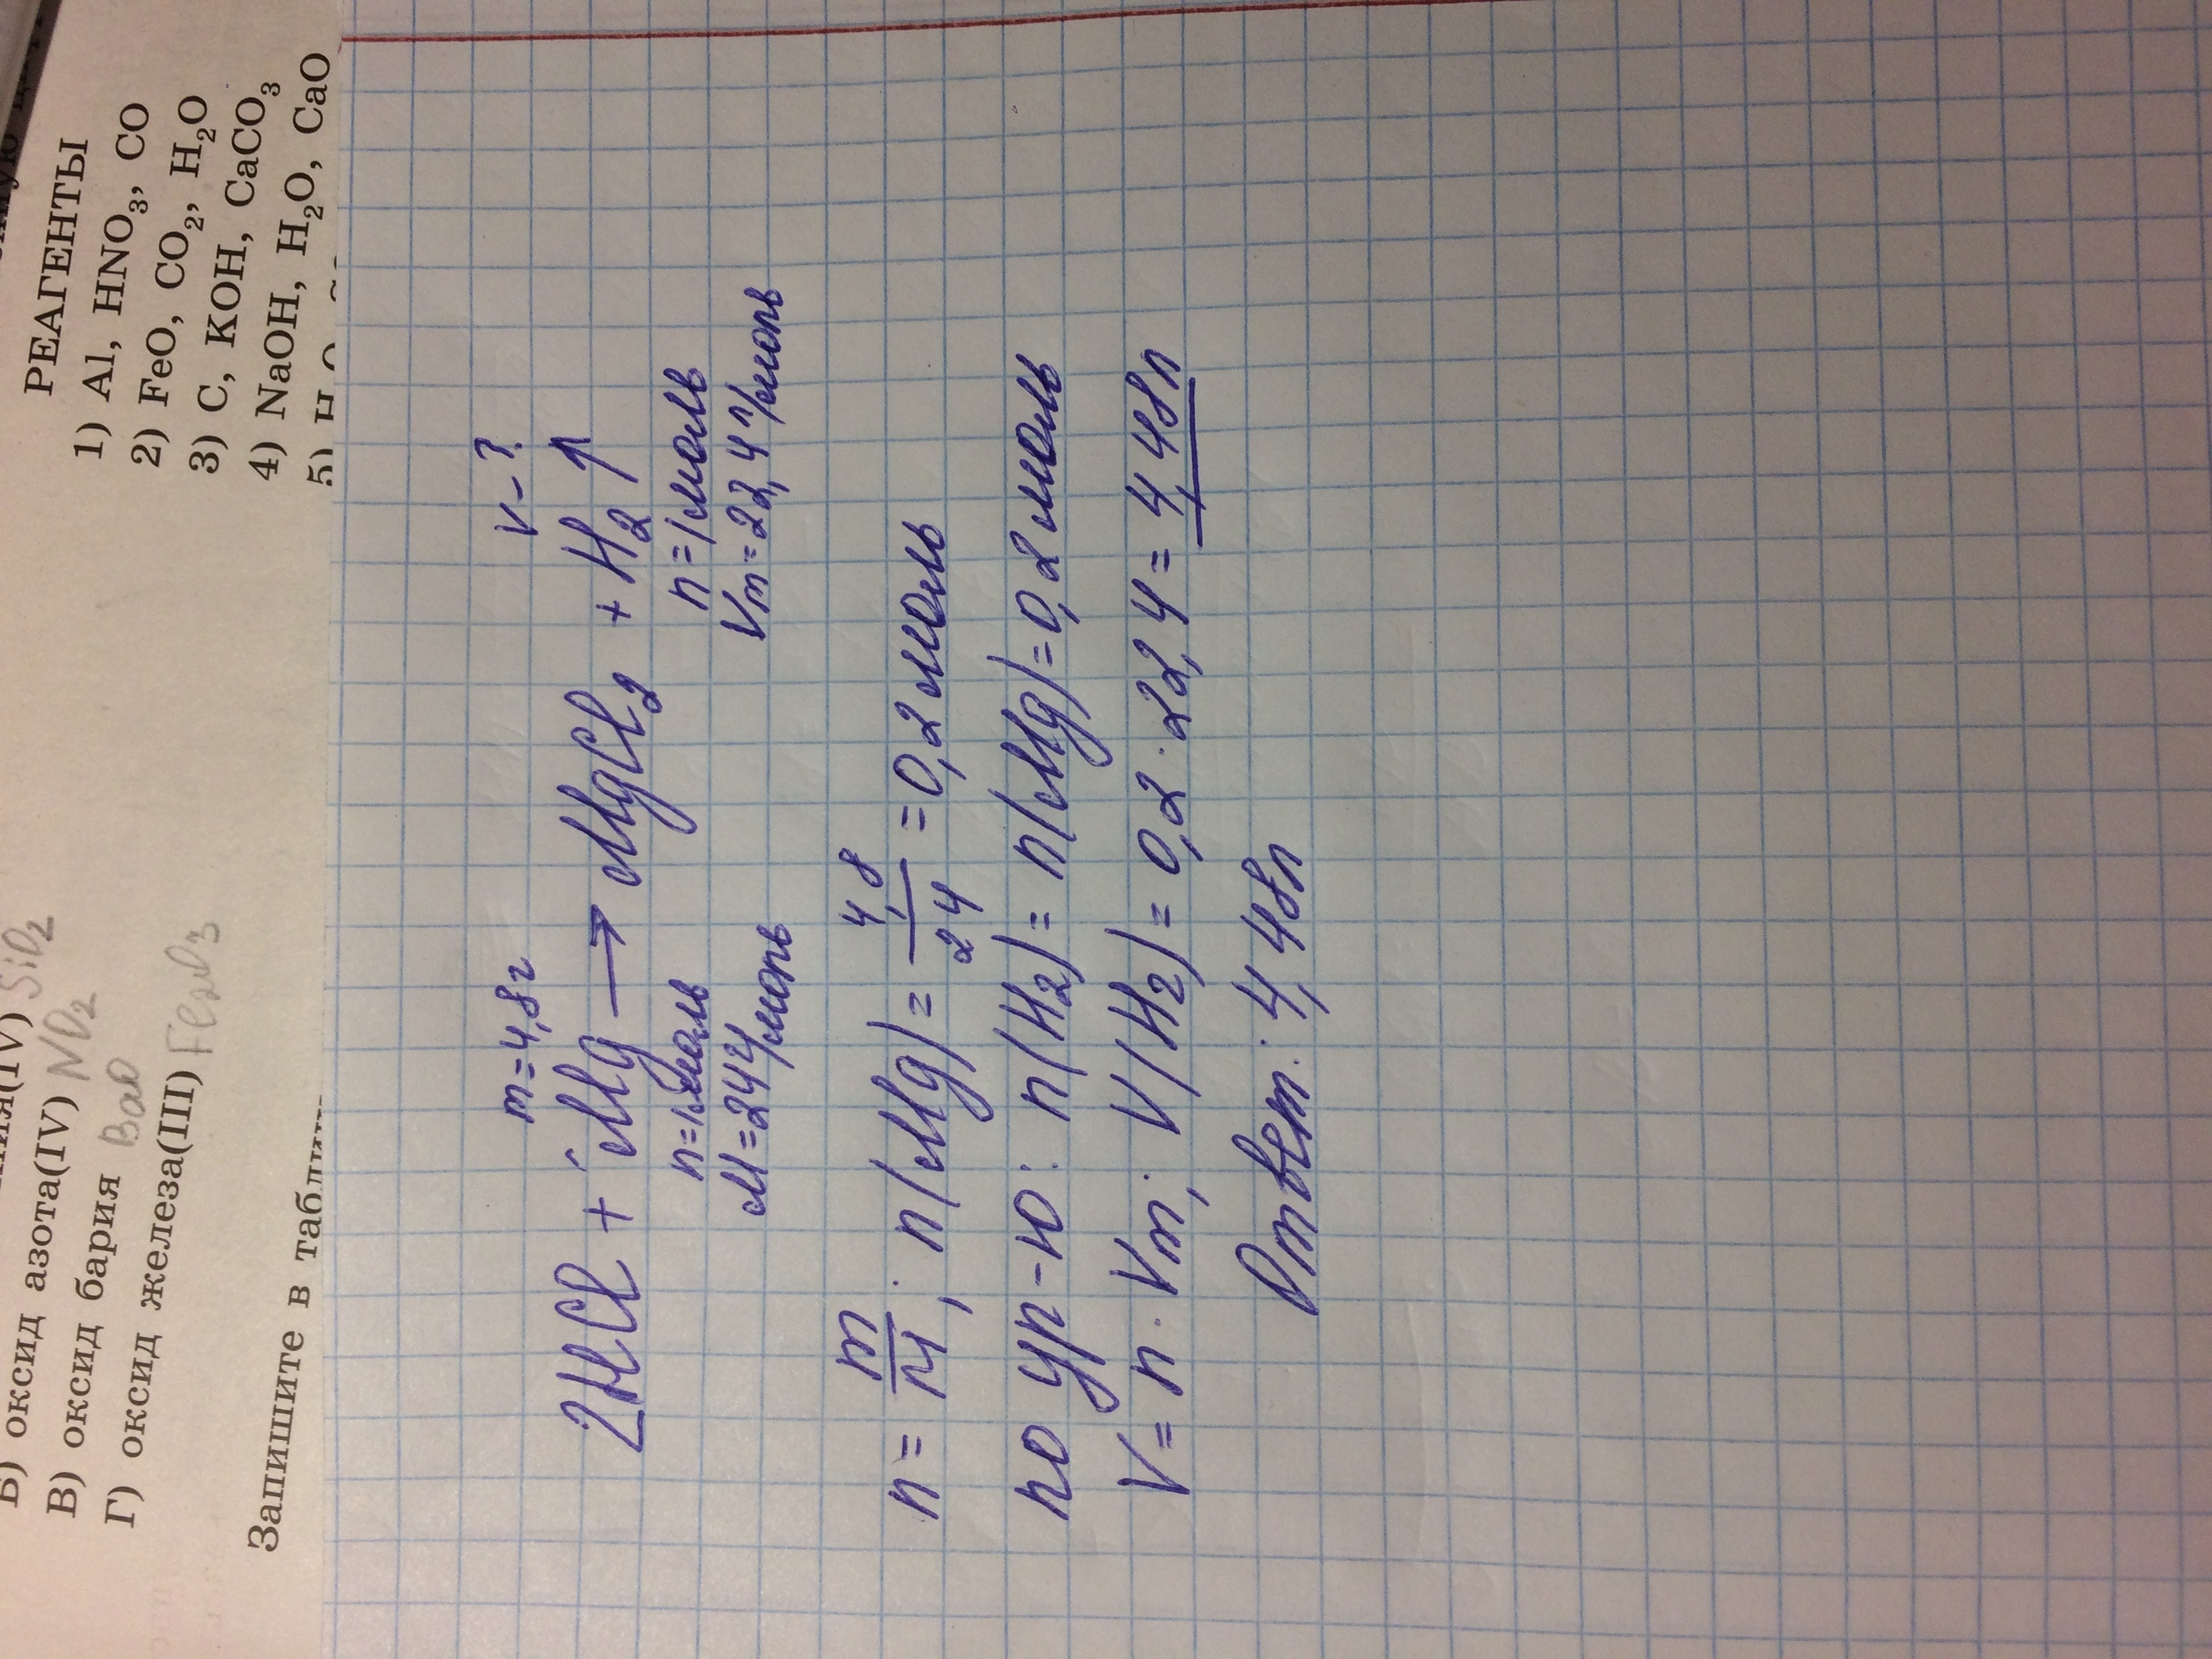 (IV) SiO₂
Б) оксид азота(IV) NO₂
В) оксид бария BaO
Г) оксид железа(III) Fe₂O₃
Запишите в
РЕАГЕНТЫ
1) Al, HNO₃, CO
2) FeO, CO₂, H₂O
3) C, KOH, CaCO₃
4) NaOH, H₂O, CaO
5)
m=4,8г V-?
2HCl + Mg → MgCl₂ + H₂↑
n=1моль n=1моль
M=24г/моль Vm=22,4л/моль
n= m/M; n(Mg)= 4,8/24 =0,2моль
по ур-ю: n(H₂)= n(Mg)=0,2моль
V= n·Vm; V(H₂)= 0,2·22,4= 4,48л
Ответ: 4,48л